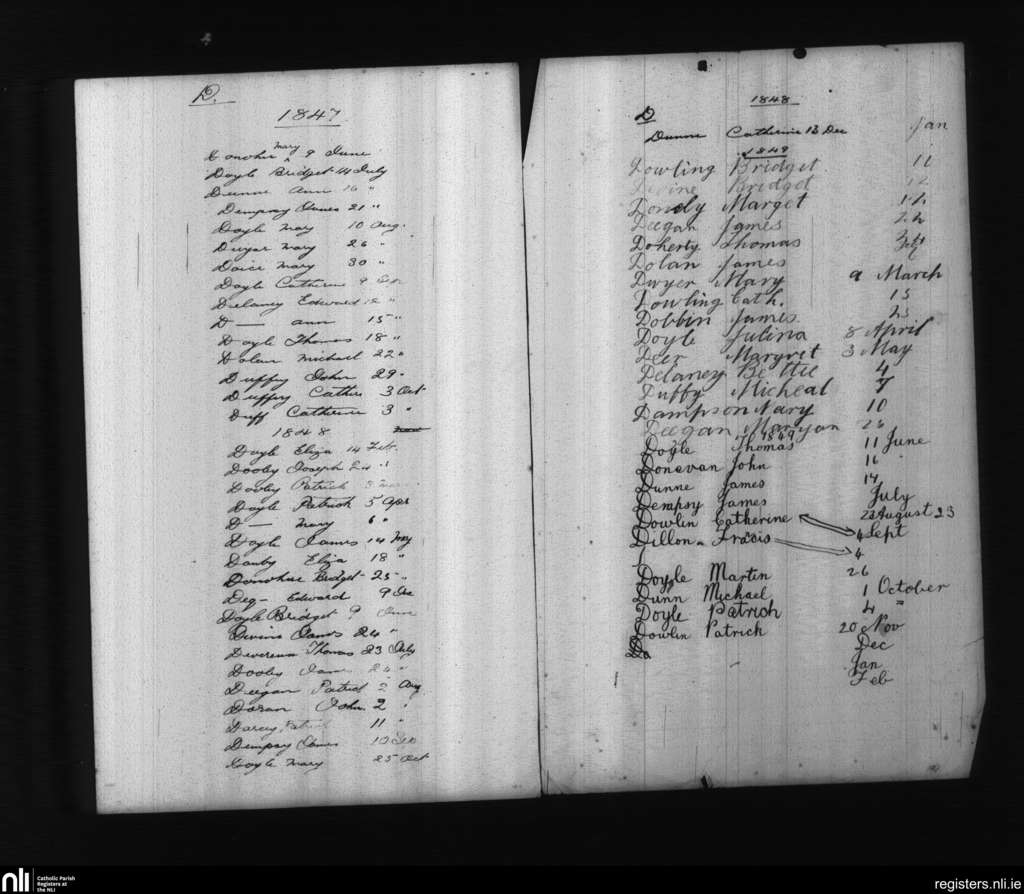 D.
1847
Donohu Mary 9 June
Doyle Bridget 14 July
Dunne Ann 16 "
Dempsey James 21 "
Doyle Mary 10 Aug.
Dwyer Mary 26 "
Mary 30 "
Doyle Catherine 9 Sep
Delaney Edward 12 "
D — Ann 15 "
Doyle Thomas 18 "
Dolan Michael 22 "
Duffy John 29 "
Duffey Cathe 3 Oct
Duff Catherine 3 "
1848
Doyle Eliza 14 Feb.
Dooley Joseph 24 "
Dooley Patrick 3
Doyle Patrick 5 Apr
D — Mary 6 "
Doyle James 14 May
Eliza 18 "
Donohue Bridget 25 "
Deg— Edward 9
Doyle Bridget 9 June
Devins James 24 "
Devereux Thomas 23 July
Dooley James 24 "
Deegan Patrick 2 Aug
Doran John 2 "
Darcey Patrick 11 "
Dempsey James 10 Sep
Doyle Mary 25 Oct
1848
D
Dunne Catherine 13 Dec Jan
1849
Dowling Bridget 11
Devine Bridget 12
Dondy Marget 12
Deegan James 22
Doherty Thomas Feb
Dolan James
Dwyer Mary 9 March
Dowling Cath. 15
Dobbin James 25
Doyle Julina 8 April
Deer Margret 3 May
Delaney Bettie 4
Duffy Micheal 7
Dampson Mary 10
Deegan Maryan 26
1849
Doyle Thomas 11 June
Donavan John 16
Dunne James 14
Dempsy James July
Dowlin Catherine 23 August 23
Dillon Fracis 4 Sept
4
Doyle Martin 26
Dunn Michael 1 October
Doyle Patrich 4 "
Dowlin Patrich 20 Nov
Da Dec
Jan
Feb
nli Catholic Parish
Registers at
the NLI
registers.nli.ie